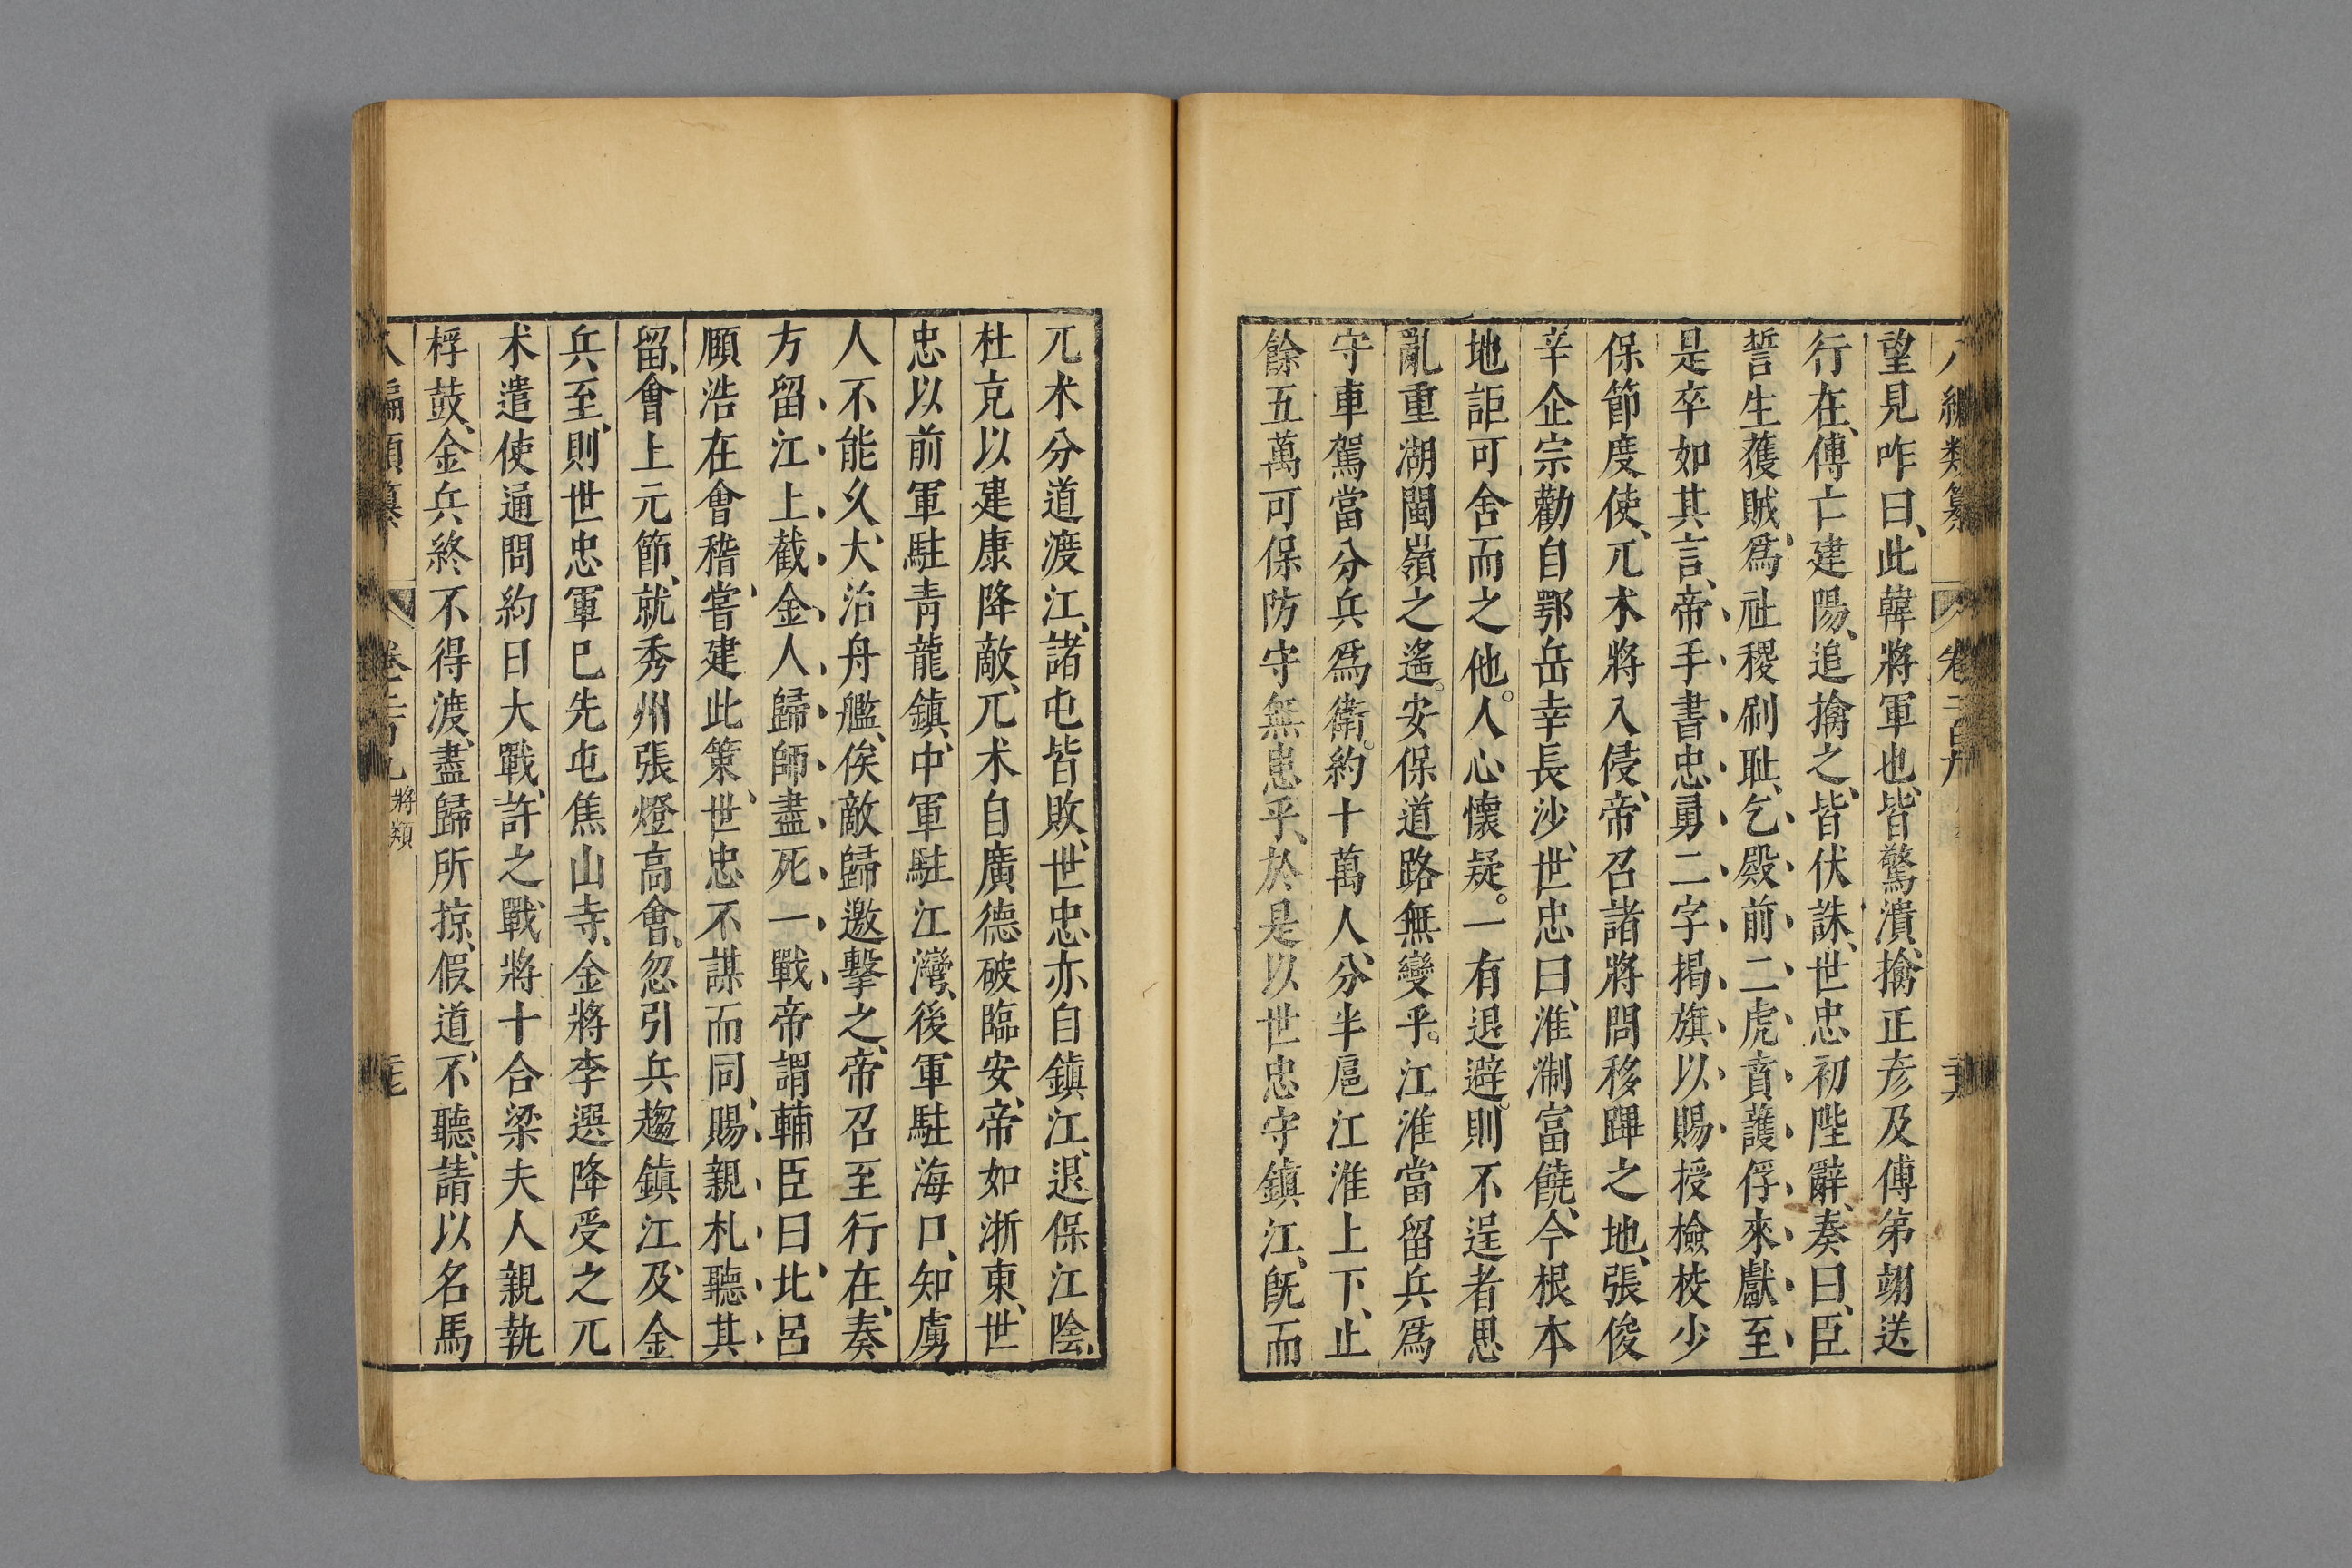 望見咋曰、此韓將軍也、皆驚潰、擒正彥及傅第翊送
行在、傅亡建陽、追擒之、皆伏誅、世忠初陛辭、奏曰、臣
誓生獲賊、爲社稷刷耻、乞殿前二虎賁護俘來獻、至
是卒如其言、帝手書忠勇二字揭旗以賜、授檢校少
保節度使、兀朮將入侵、帝召諸將問移蹕之地、張俊
辛企宗勸自鄂岳幸長沙、世忠曰、淮淛富饒、今根本
地詎可舍而之他。人心懷疑。一有退避。則不逞者思
亂重湖閩嶺之遙。安保道路無變乎。江淮當留兵爲
守車駕當分兵爲衛。約十萬人、分半扈江淮上下、止
餘五萬可保防守無患乎、於是以世忠守鎮江、既而
兀朮分道渡江、諸屯皆敗、世忠亦自鎮江、退保江陰、
杜充以建康降敵、兀朮自廣德破臨安、帝如浙東、世
忠以前軍駐青龍鎮、中軍駐江灣、後軍駐海口、知虜
人不能久、大治舟艦、俟敵歸邀擊之、帝召至行在、奏
方留江上截金人歸師盡死一戰、帝謂輔臣曰、比呂
頤浩在會稽、嘗建此策、世忠不謀而同、賜親札、聽其
留、會上元節、就秀州張燈高會、忽引兵趨鎮江、及金
兵至、則世忠軍已先屯焦山寺、金將李選降受之兀
朮遣使通問約日大戰、許之、戰將十合梁夫人親執
桴鼓、金兵終不得渡、盡歸所掠、假道、不聽、請以名馬
將類